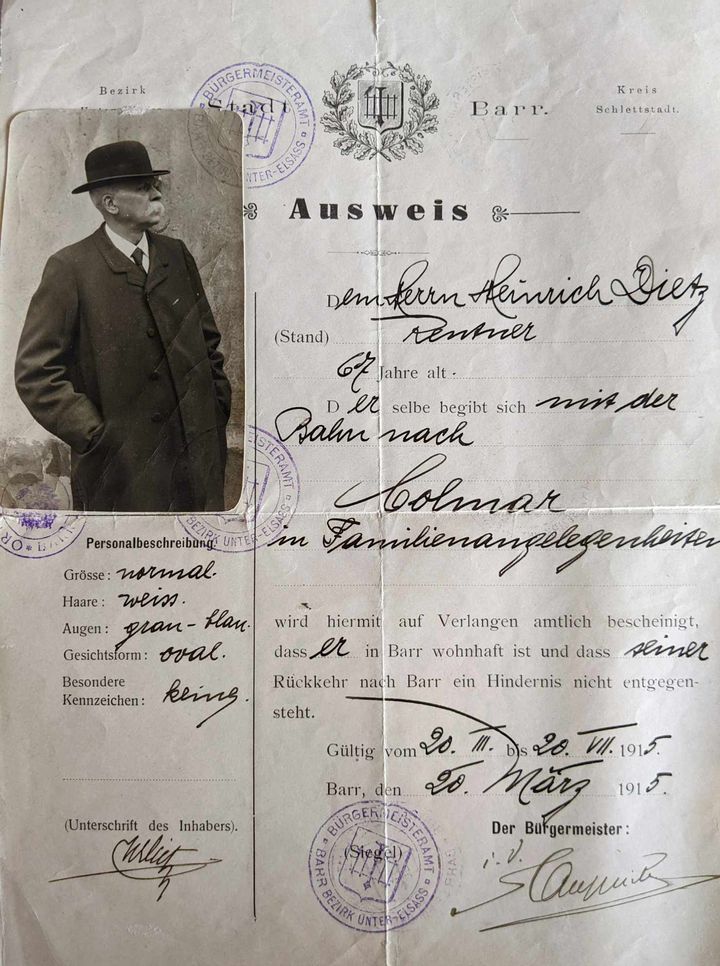 Bezirk
Stadt
Barr.
Kreis
Schlettstadt.
BÜRGERMEISTERAMT
UNTER-ELSASS
Ausweis
Dem Herrn Heinrich Dietz
(Stand) Rentner
67 Jahre alt.
Der selbe begibt sich mit der
Bahn nach
Colmar
in Familienangelegenheiten
wird hiermit auf Verlangen amtlich bescheinigt,
dass er in Barr wohnhaft ist und dass seiner
Rückkehr nach Barr ein Hindernis nicht entgegen-
steht.
Gültig vom 20. III. bis 20. VII. 1915.
Barr, den 20. März 1915.
Der Bürgermeister:
i. V.
(Siegel)
BÜRGERMEISTERAMT
BARR BEZIRK UNTER-ELSASS
STERAMT
BEZIRK UNTER-ELSASS
Personalbeschreibung
Grösse: normal.
Haare: weiss.
Augen: grau-blau.
Gesichtsform: oval.
Besondere
Kennzeichen: keine.
(Unterschrift des Inhabers).